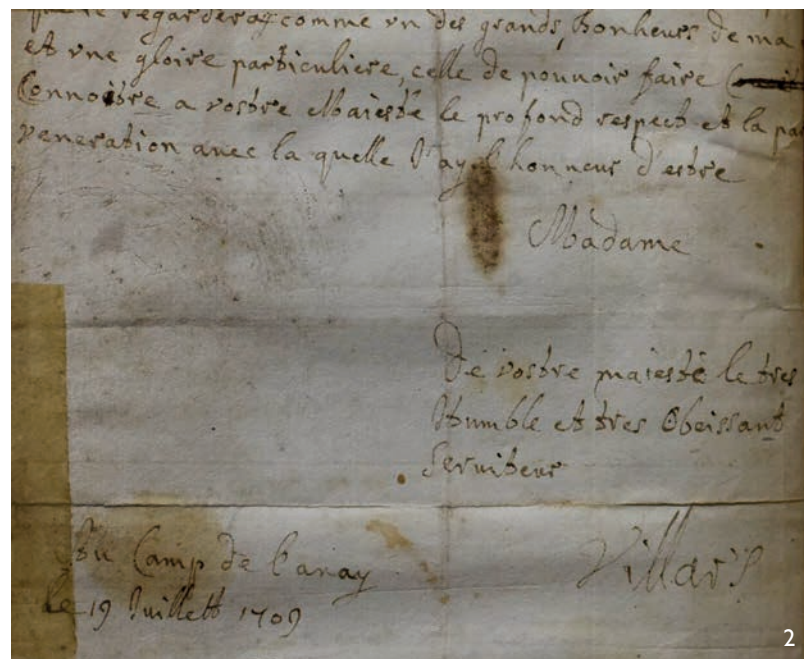 regarderay comme vn des grands, bonheurs de ma
et vne gloire particuliere, celle de pouuoir faire
Connoitre a vostre Maiesté le profond respect et la
veneration auec la quelle J'ay l'honneur d'estre
Madame
De vostre maiesté le tres
Humble et tres Obeissant
Seruiteur
Au Camp de
le 19 Juillett 1709
Villars
2